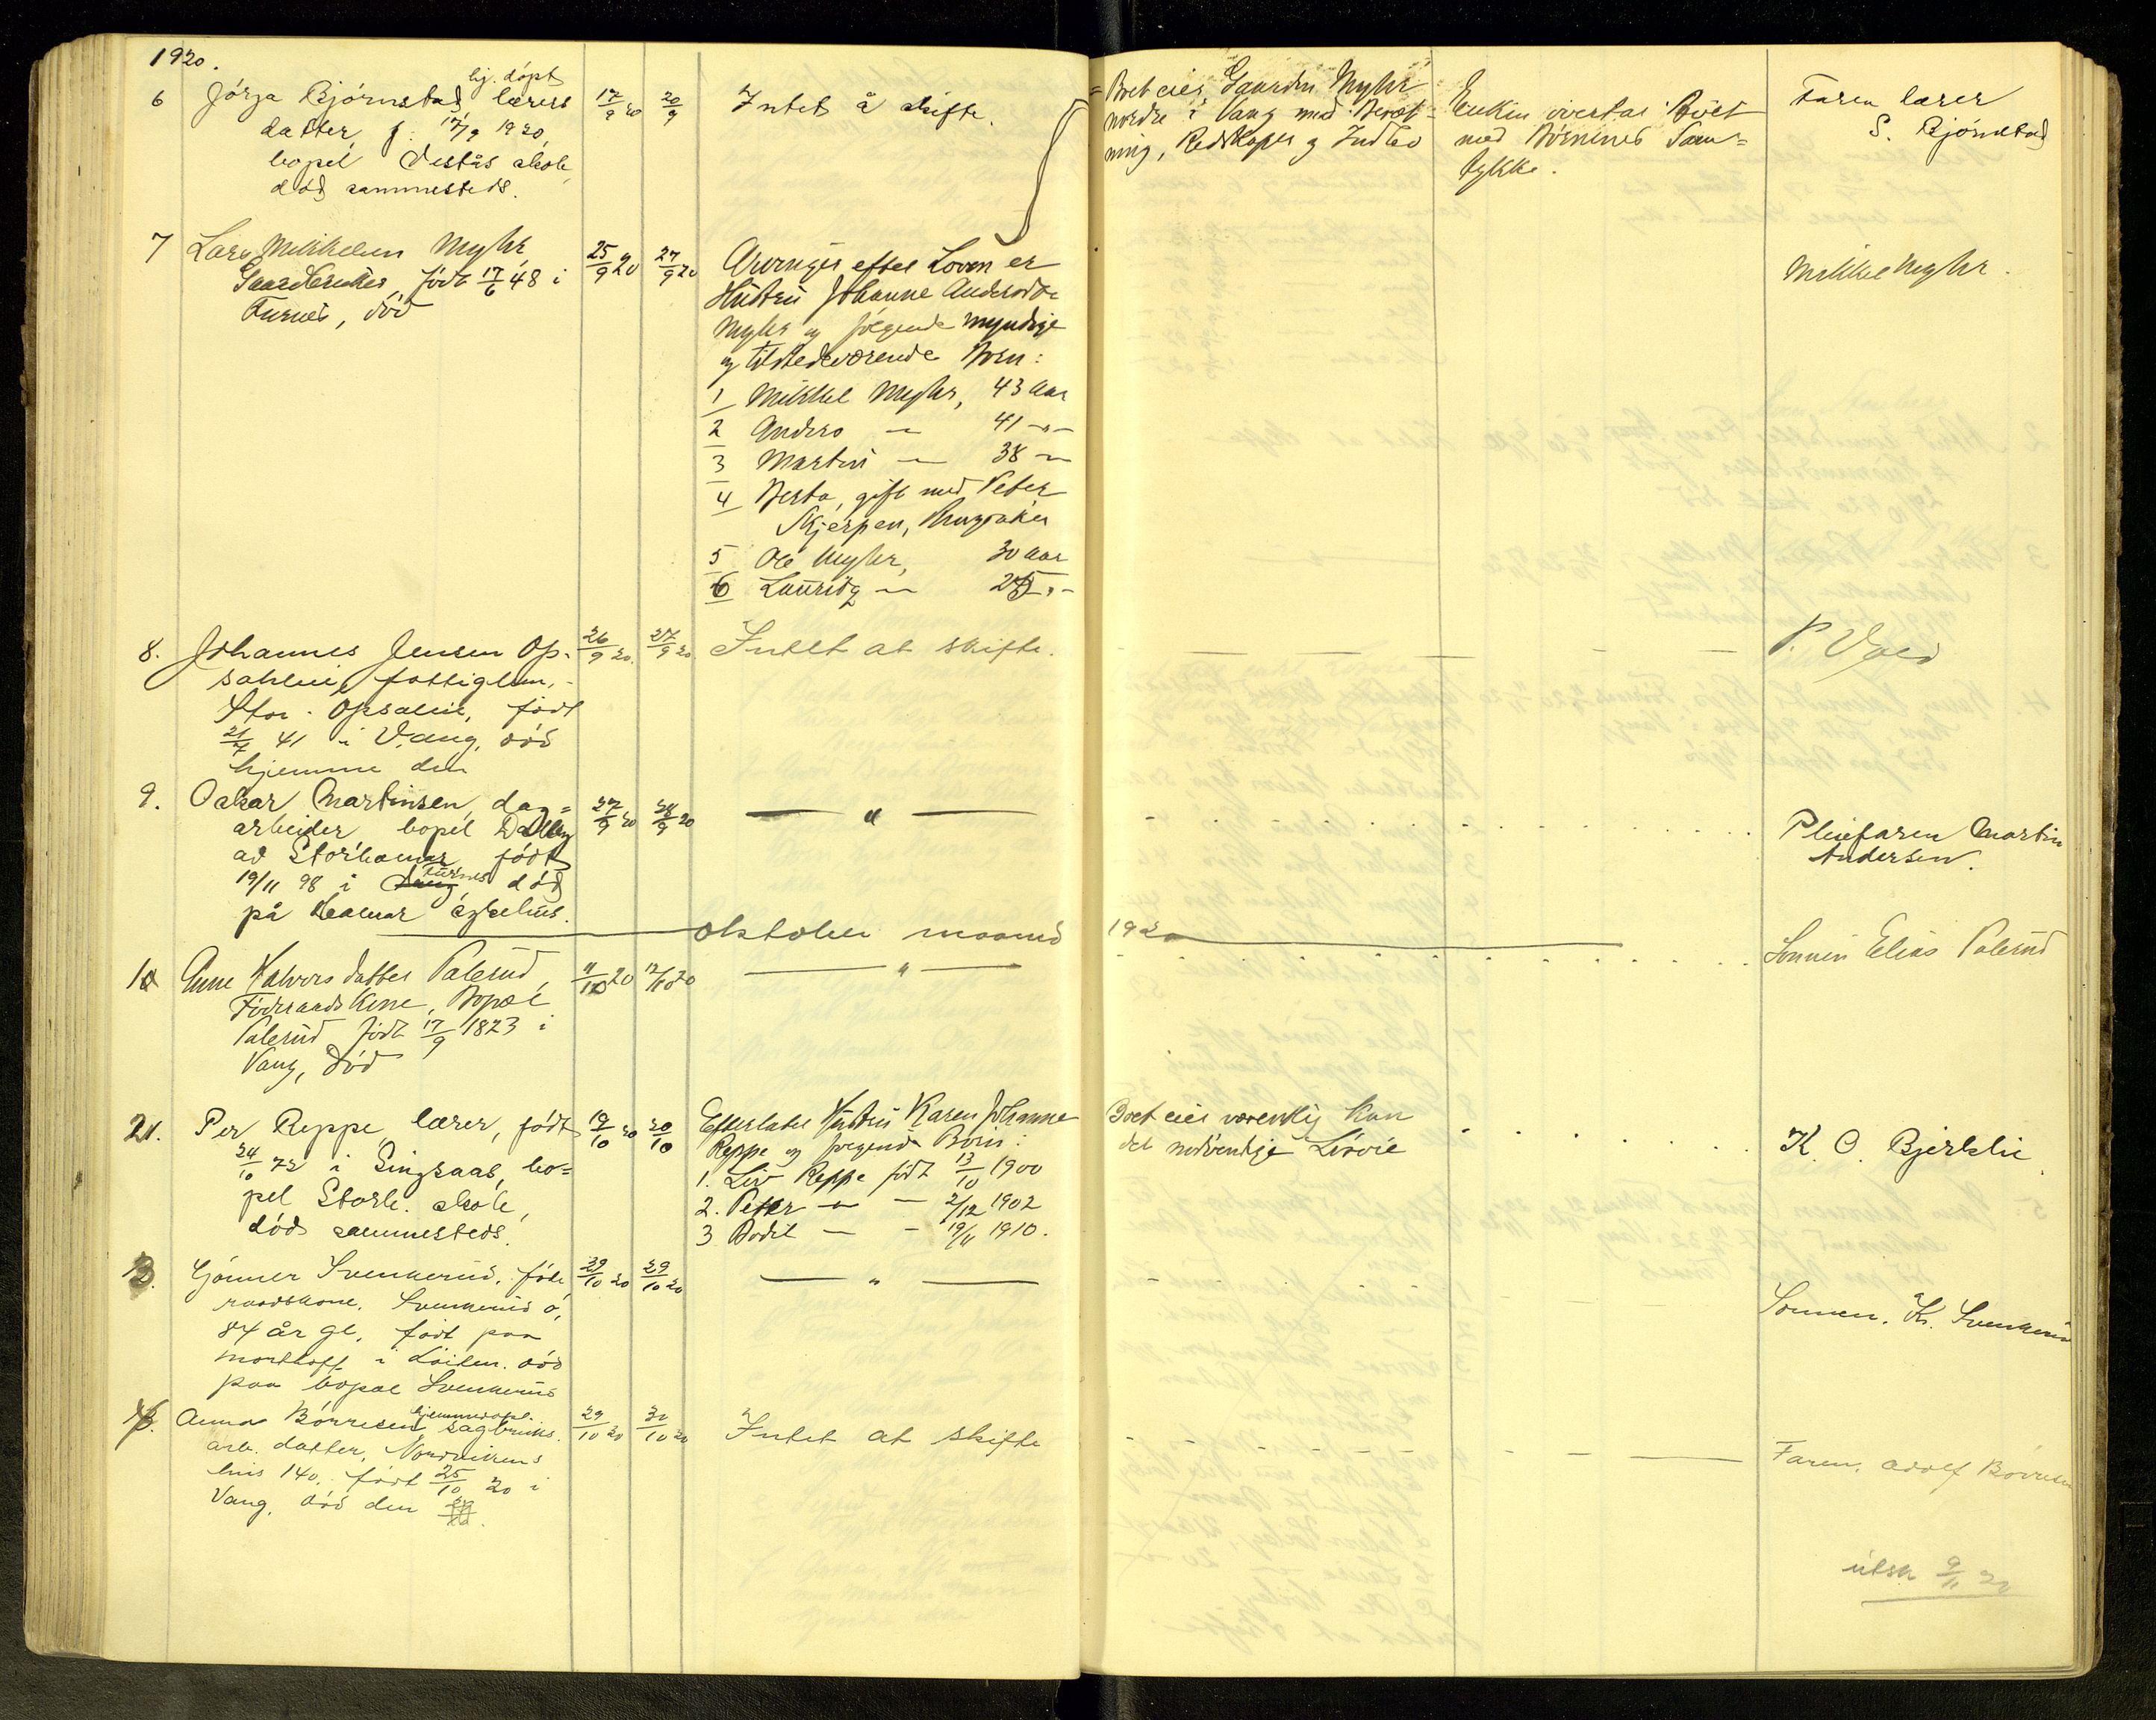 1920.
hj. döpt
6 Jörga Björnstad, lærers
datter, f. 17/9 1920,
bopel Vestås skole,
död sammesteds.
17/9 20
20/9
Intet å skifte.
Boet eier Gaarden Myhr
nordre i Vang med Besæt-
ning, Redskaper og Indbo
Enken overtar Boet
med Börnenes Sam=
tykke.
Faren lærer
S. Björnstad
7 Lars Mikkelsen Myhr,
Gaardbruker, födt 17/6 48 i
Furnes, död
25/9 20
27/9 20
Arvinger efter Loven er
Hustru Johanne Andersdtr
Myhr og fölgende myndige
og tilstedeværende Börn:
1 Mikkel Myhr, 43 Aar
2 Anders — 41 -"-
3 Martin — 38 —
4 Berta, gift med Peter
Skjerpen,
5 Ole Myhr, 30 Aar
6 Lauritz — 25 -"-
Mikkel Myhr.
8. Johannes Jensen Op-
sahleie, fattiglem,
Stor-Opsaleie, född
21/7 41 i Vang, död
hjemme den
26/9 20.
27/9 20
Intet at skifte.
P. Vold
9. Oskar Martinsen, dag=
arbeider, bopel Dalby
av Storhamar, född
19/11 98 i Vang Furnes, död
på Hamar sykehus.
27/9 20
28/9 20
— " —
Pleiefaren Martin
Andersen.
oktober maaned 1920
10 Anne Halvorsdatter Palerud,
Föderaadskone, Bopæl
Palerud född 17/9 1823 i
Vang, Död
11/10 20
12/10 20
— " —
Sönnen Elias Palerud
21. Per Reppe, lærer, född
24/10 72 i Singsaas, bo=
pel Storh. skole,
död sammesteds.
19/10 20
20/10
Efterlater Hustru Karen Johanne
Reppe og fölgende Börn:
1. Liv Reppe födt 13/10 1900
2. Petter — — 2/12 1902
3 Bodil — — 19/11 1910.
Boet eier væsentlig kun
det nödvendige Lösöre
K. O. Bjerklie
3. Gönner Svenkerud, föde
raadskone. Svenkerud ö,
84 år gl. född paa
Morthoff i Löiten. död
paa bopæl Svenkerud
29/10 20
29/10 20
— " —
Sönnen. K. Svenkerud
4. Anna Börresen, hjemmedöpt. sagbruks.
arb. datter, Nordvikens
hus 140. född 25/10 20 i
Vang. död den
29/10 20
31/10 20
Intet at skifte
Faren. Adolf Börresen
utsk 9/11 20